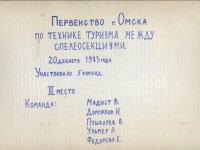 Первенство г. Омска
по технике туризма между
спелеосекциями.
20 декабря 1983 года.
Участвовало 5 команд.
III место
Команда: Мадист В.
Дорожков Н.
Птыкарев В.
Ульмер Л.
Федорова Е.